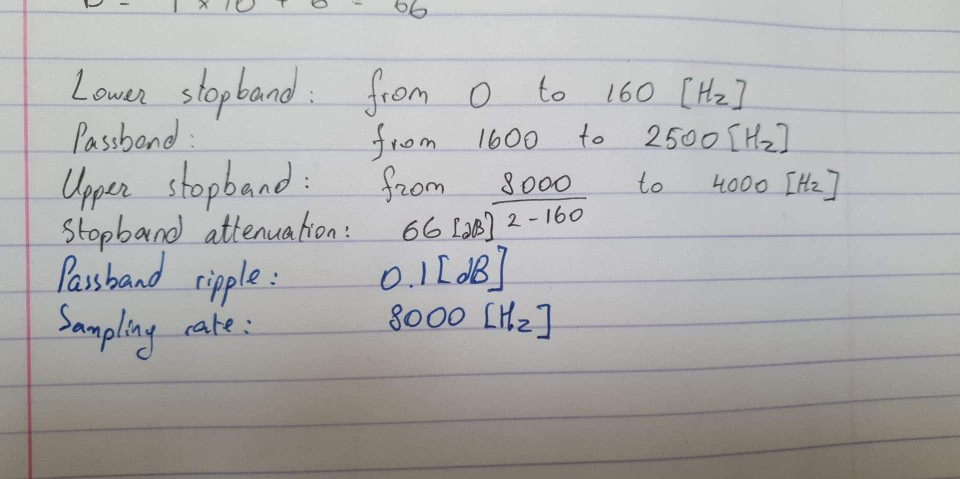 66
Lower stopband: from 0 to 160 [Hz]
Passband: from 1600 to 2500 [Hz]
Upper stopband: from 8000/2-160 to 4000 [Hz]
Stopband attenuation: 66 [dB]
Passband ripple: 0.1 [dB]
Sampling rate: 8000 [Hz]